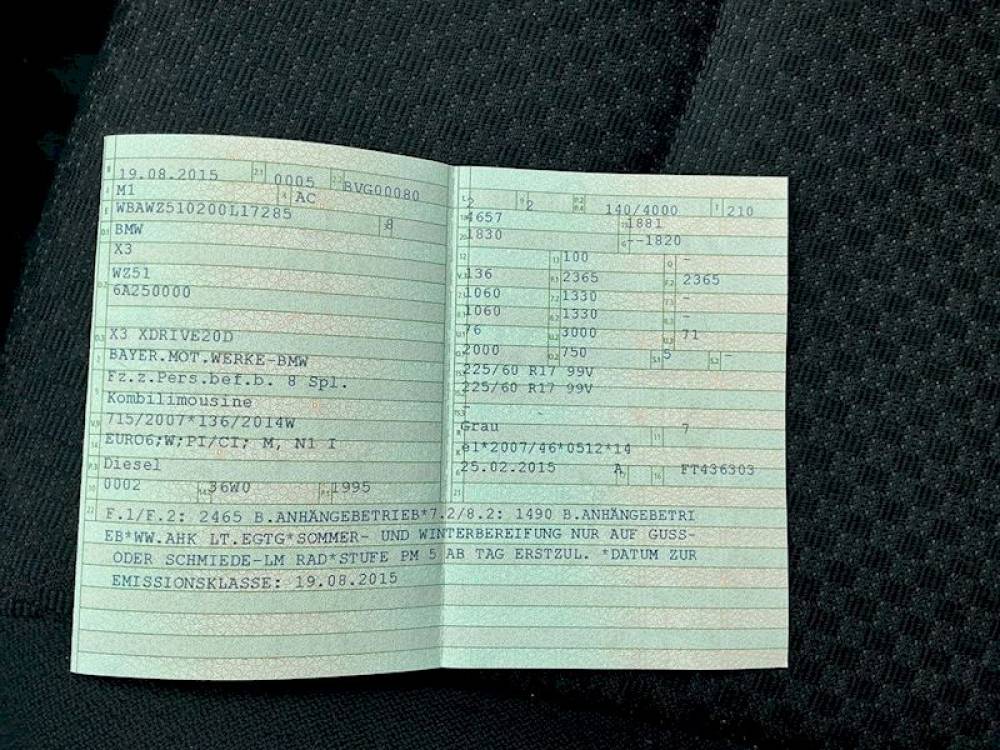 19.08.2015 0005 BVG00080
M1 AC
WBAWZ510200L17285 8
BMW
X3
WZ51
6A250000
X3 XDRIVE20D
BAYER.MOT.WERKE-BMW
Fz.z.Pers.bef.b. 8 Spl.
Kombilimousine
715/2007*136/2014W
EURO6;W;PI/CI; M, N1 I
Diesel
0002 36W0 1995
2 2 140/4000 210
4657 1881
1830 --1820
100 -
136 2365 2365
1060 1330 -
1060 1330 -
76 3000 71
2000 750 5 -
225/60 R17 99V
225/60 R17 99V
-
Grau 7
e1*2007/46*0512*14
25.02.2015 A FT436303
F.1/F.2: 2465 B.ANHÄNGEBETRIEB*7.2/8.2: 1490 B.ANHÄNGETRI
EB*WW.AHK LT.EGTG*SOMMER- UND WINTERBEREIFUNG NUR AUF GUSS-
ODER SCHMIEDE-LM RAD*STUFE PM 5 AB TAG ERSTZUL. *DATUM ZUR
EMISSIONSKLASSE: 19.08.2015